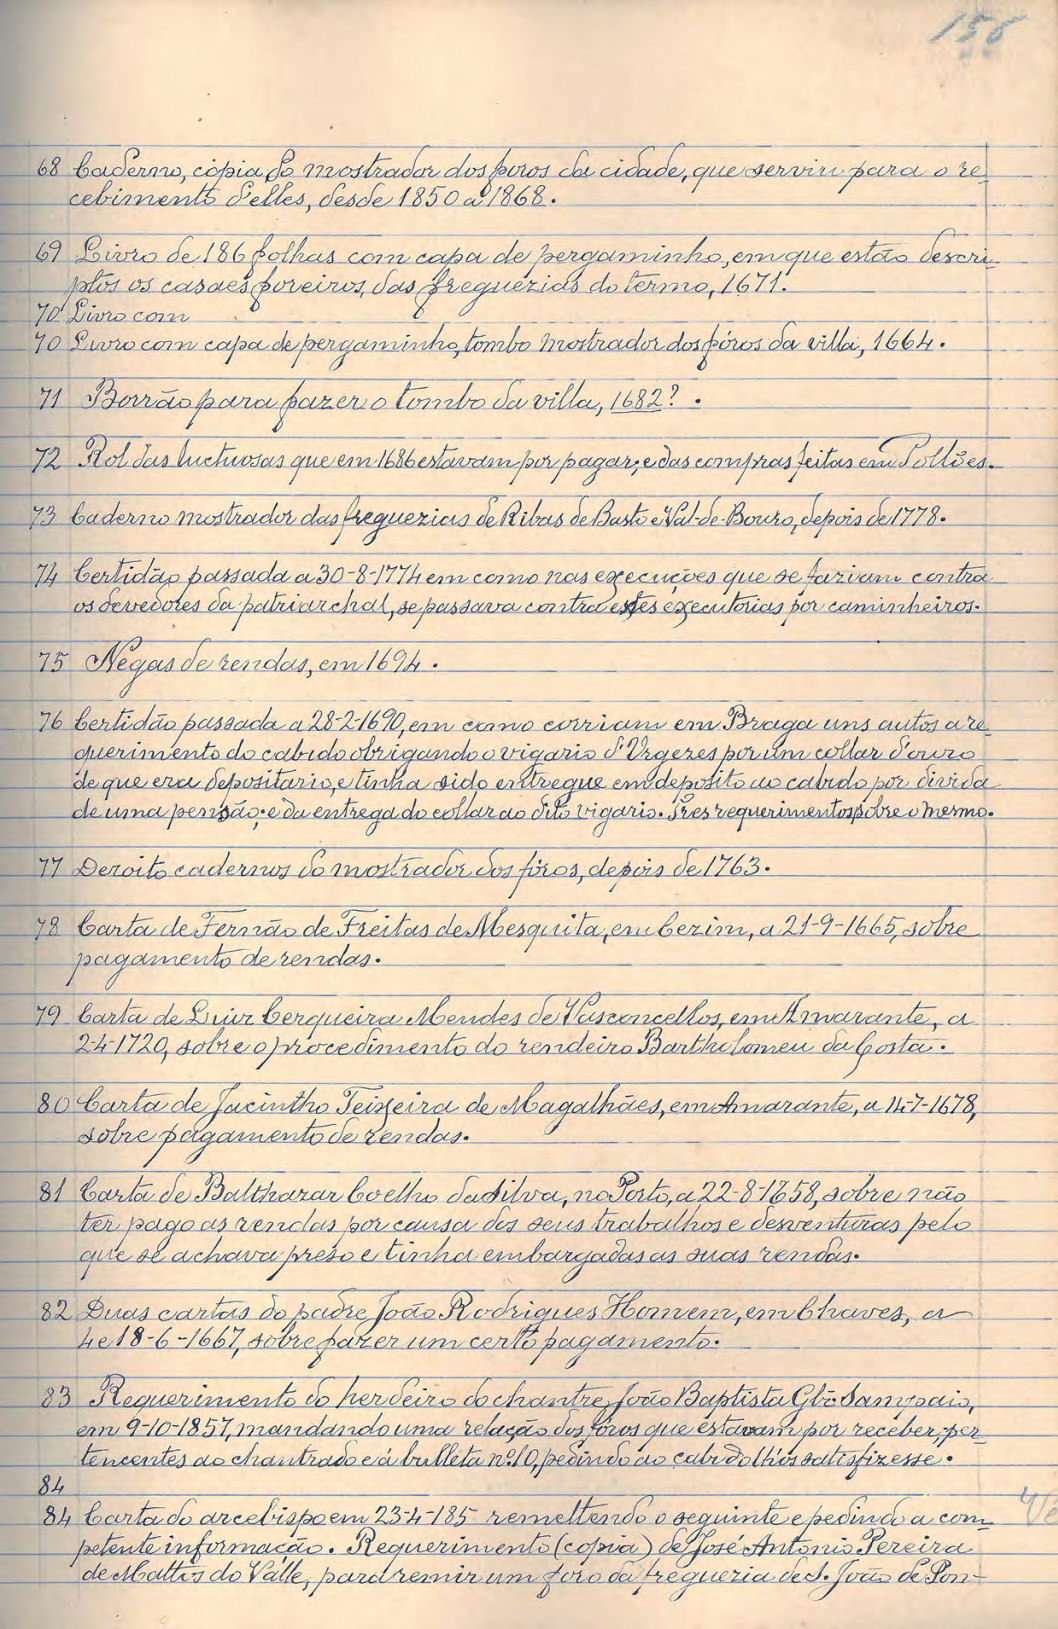 156
68 Caderno, cópia do mostrador dos foros da cidade, que serviu para o re-
cebimento d'elles, desde 1850 a 1868.
69 Livro de 186 folhas com capa de pergaminho, em que estão descri-
ptos os casaes foreiros, das freguezias do termo, 1671.
70 Livro com
70 Livro com capa de pergaminho, tombo mostrador dos fóros da villa, 1664.
71 Borrão para fazer o tombo da villa, 1682?.
72 Rol das luctuosas que em 1686 estavam por pagar, e das compras feitas em Polvões.
73 Caderno mostrador das freguezias de Ribas de Basto e Val-de-Bouro, depois de 1778.
74 Certidão passada a 30-8-1774 em como nas execuções que se faziam contra
os devedores da patriarchal, se passava contra estes executorias por caminheiros.
75 Negas de rendas, em 1694.
76 Certidão passada a 28-2-1690, em como corriam em Braga uns autos a re-
querimento do cabido obrigando o vigario d'Urgezes por um collar d'ouro
de que era depositario, e tinha sido entregue em deposito ao cabido por divida
de uma pensão; e da entrega do collar ao dito vigario. Tres requerimentos sobre o mesmo.
77 Dezoito cadernos do mostrador dos fóros, depois de 1763.
78 Carta de Fernão de Freitas de Mesquita, em Cezim, a 21-9-1665, sobre
pagamento de rendas.
79 Carta de Luiz Cerqueira Mendes de Vasconcellos, em Amarante, a
2-4-1720, sobre o procedimento do rendeiro Bartholomeu da Costa.
80 Carta de Jacintho Teixeira de Magalhães, em Amarante, a 14-7-1678,
sobre pagamento de rendas.
81 Carta de Balthazar Coelho da Silva, no Porto, a 22-8-1658, sobre não
ter pago as rendas por causa dos seus trabalhos e desventuras pelo
que se achava preso e tinha embargadas as suas rendas.
82 Duas cartas do padre João Rodrigues Homem, em Chaves, a
4 e 18-6-1667, sobre fazer um certo pagamento.
83 Requerimento do herdeiro do chantre João Baptista Glz Sampaio,
em 9-10-1857, mandando uma relação dos fóros que estavam por receber, per-
tencentes ao chantrado e á bulleta nº 10, pedindo ao cabido lh'os satisfizesse.
84
84 Carta do arcebispo em 23-4-185 remettendo o seguinte e pedindo a com-
petente informação. Requerimento (copia) de José Antonio Pereira
de Mattos do Valle, para remir um foro da freguezia de S. João de Pon-